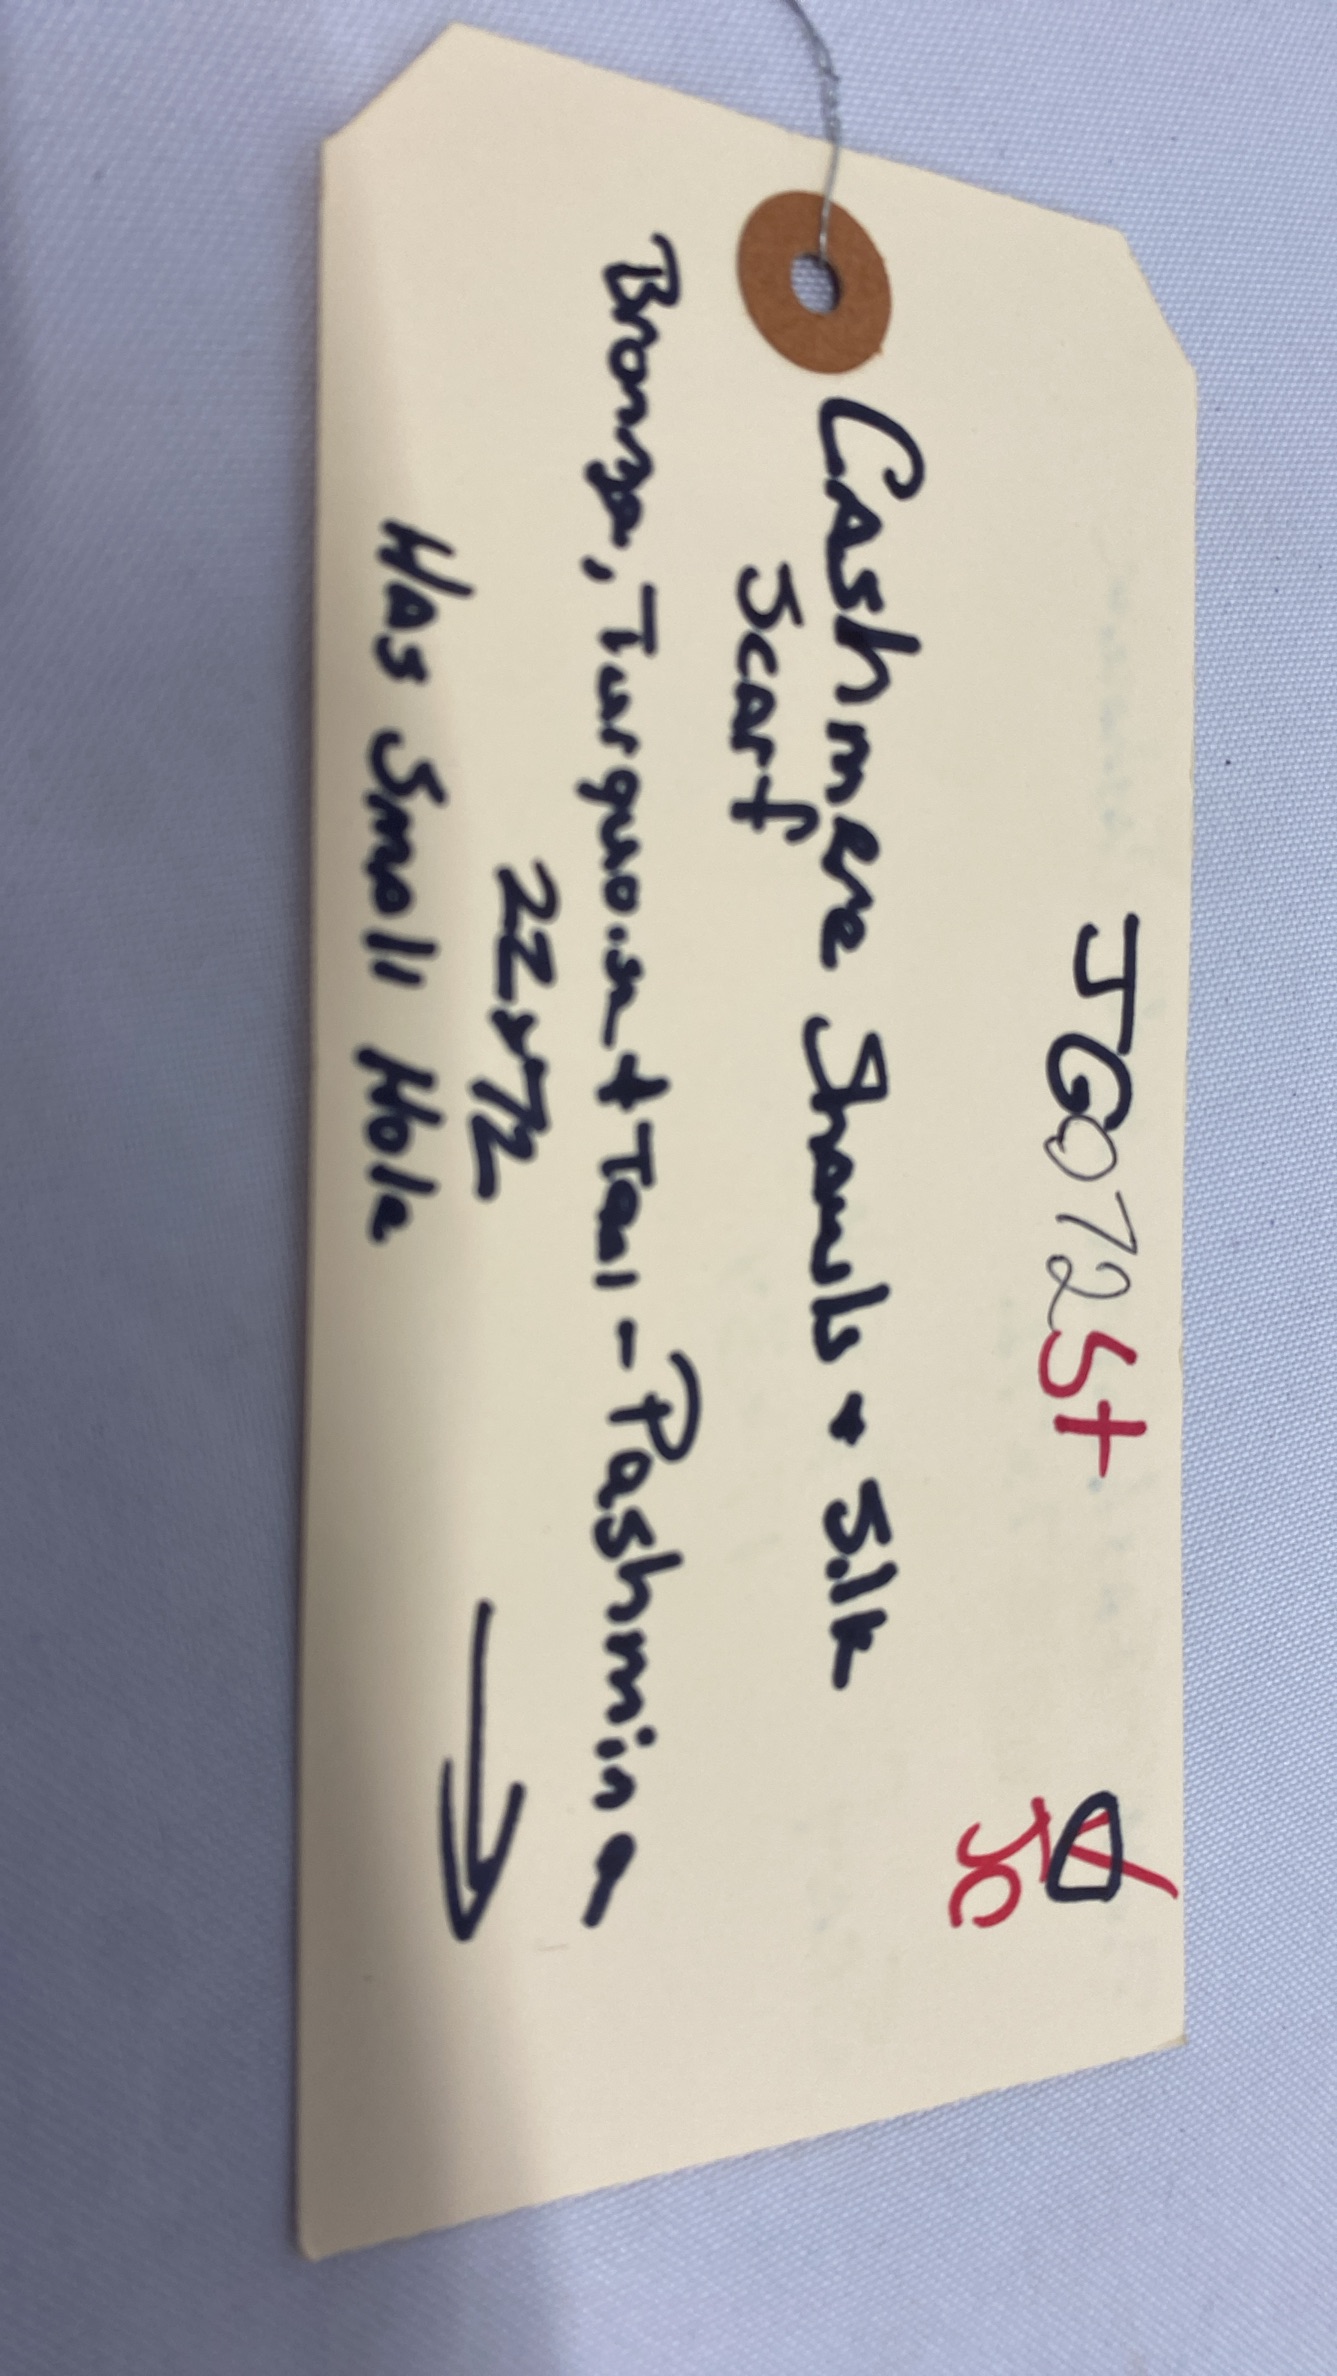 JG0725+
JC
Cashmere Shawls + Silk
Scarf
Bronze, Turquoise + Teal - Pashmina
22x72
Has Small Hole